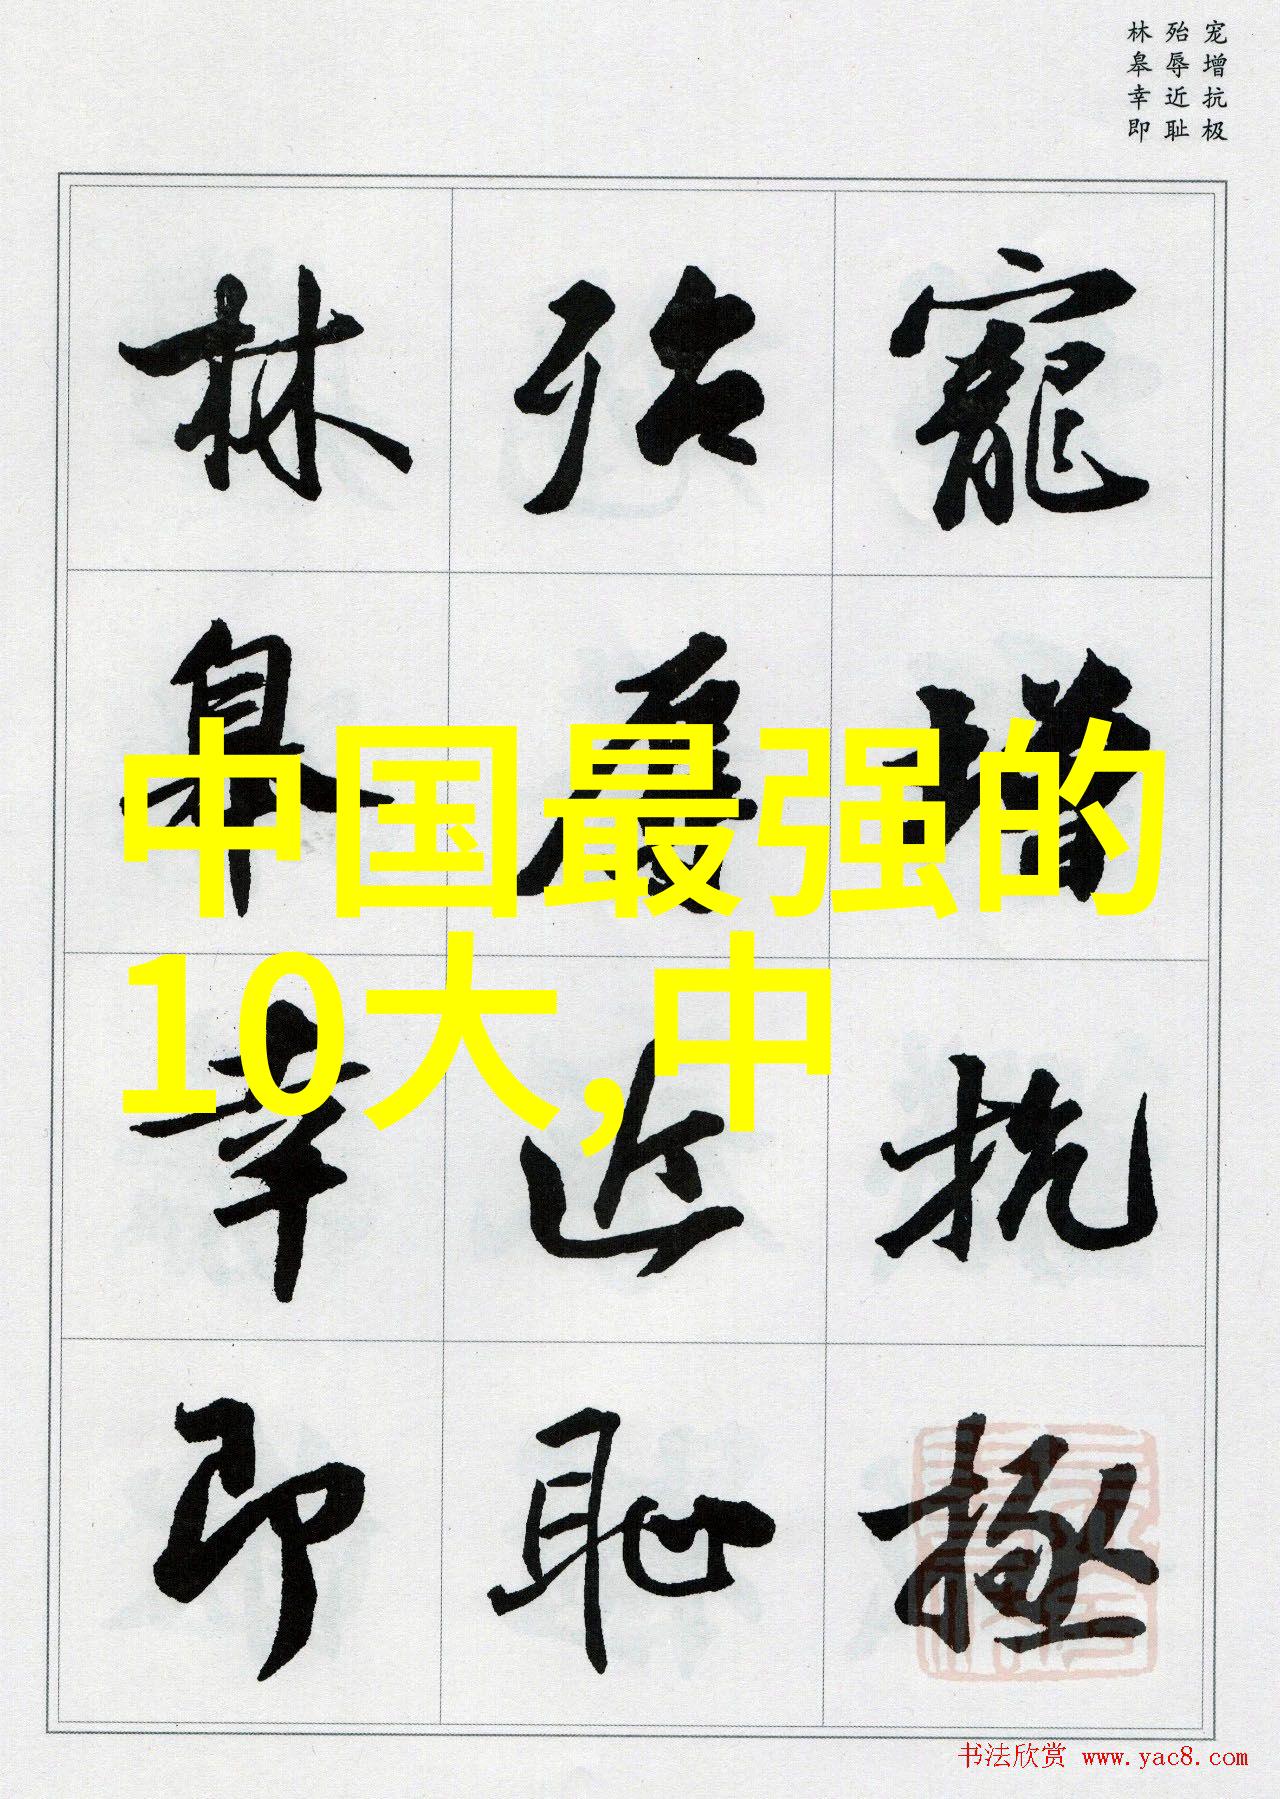 宠增抗极
殆辱近耻
林皋幸即
寵增抗極
殆辱近恥
林皋幸即
中国最强的
10大,中
书法欣赏 www.yac8.com